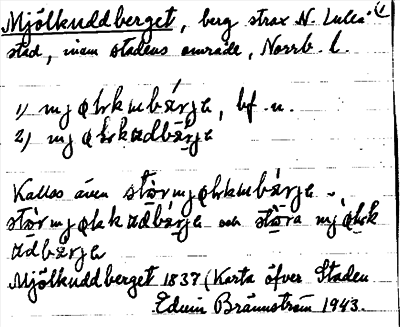 Mjölkuddberget, berg strax N. Luleå (1
stad, inom stadens område, Norrb. l.
1) mjɷlkubärje, bf. u.
2) mjɷlkɷdbärje
Kallas även störmjɷlkubärje -
störmjɷlkɷdbärje och störa mjɷlk
ɷdbärje
Mjölkuddberget 1837 (Karta öfver Staden
Edvin Brännström 1943.